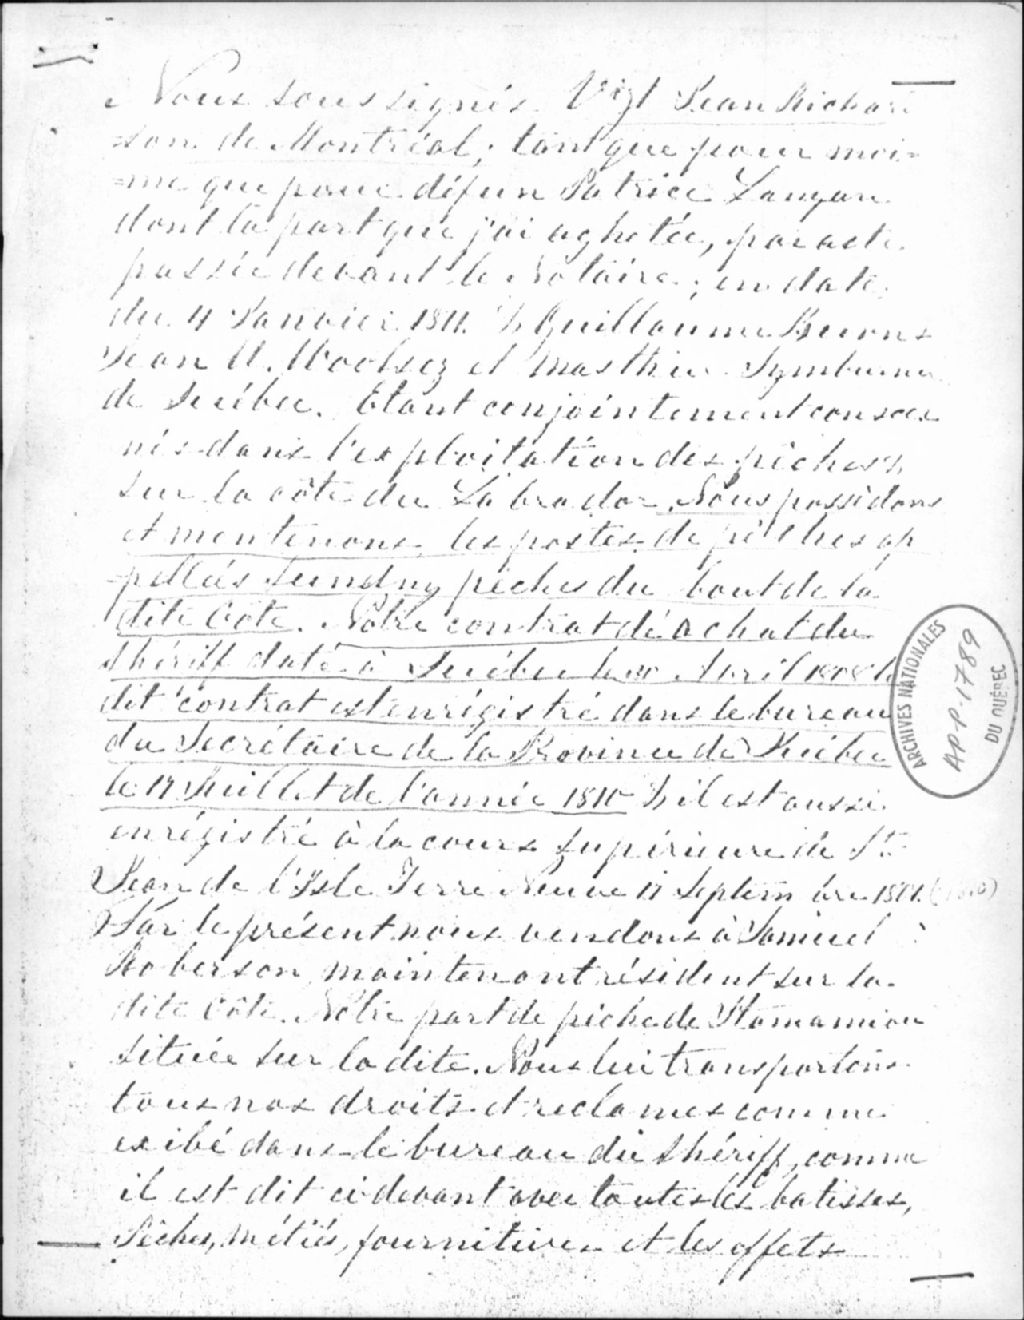 Nous soussignés Vizt Jean Richard
=son de Montréal, tan que pour moi=
=me que pour défun Patrice Langan
dont la part que j'ai aghetée, par acte
passée devant le Notaire, en date
du 4 Janvier 1811. & Guillaume Burns
Jean W. Woolsey et Matthew Lymburner
de Québec. Etant conjointement conser
nés dans l'exploitation des pêches,
sur la côte du Labrador, Nous possédons
et mentenons, les postes de pêthes ap
pellés pêches du bout de la
dite Côte. Notre contrat dé achat du
Shériff daté à Québec le Avril 1808 le
dit contrat est enrégistré dans le bureau
du Secrétaire de la Province de Québec
le 17 Juillet de l'année 1810 & il est aussi
enrégistré à la cours Supérieure de St
Jean de l'Isle Terre Neuve 17 Septembre
Par le présent nous vendons à Samuel
Roberson, maintenant résident sur la
dite Côte. Notre part de pêche de Itamamiou
située sur la dite. Nous lui transportons
tous nos droits et reclames comme
exibé dans le bureau du Shériff, comme
il est dit ci devant avec toutes les batisses,
Pêches, métiés, fournitures et les effets
ARCHIVES NATIONALES
DU QUÉBEC
APP-1789